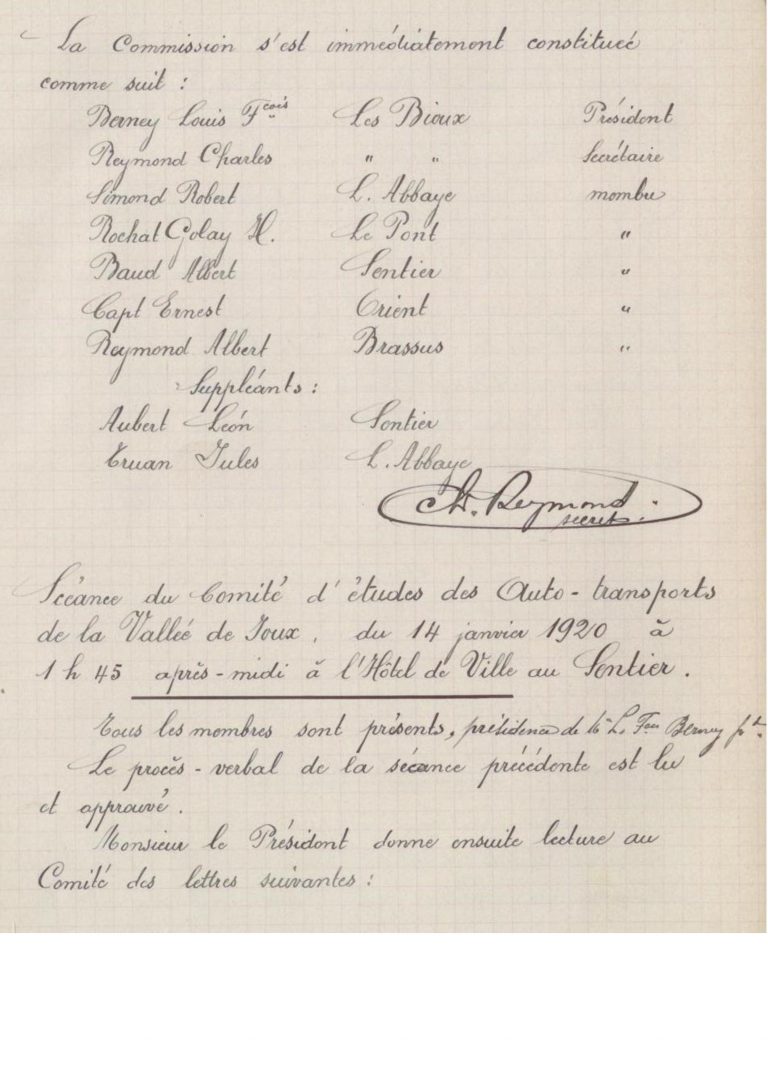 La Commission s'est immédiatement constituée
comme suit :
Berney Louis Fçois Les Bioux Président
Reymond Charles " " Secrétaire
Simond Robert L. Abbaye membre
Rochat Golay H. Le Pont "
Baud Albert Sentier "
Capt Ernest Orient "
Reymond Albert Brassus "
Suppléants :
Aubert Léon Sentier
Truan Jules L. Abbaye
Ch. Reymond.
secret.
Séance du Comité d'études des Auto-transports
de la Vallée de Joux, du 14 janvier 1920 à
1 h 45 après-midi à l'Hôtel de Ville au Sentier.
Tous les membres sont présents, présidence de L. Berney
Le procès-verbal de la séance précédente est lu
et approuvé.
Monsieur le Président donne ensuite lecture au
Comité des lettres suivantes :